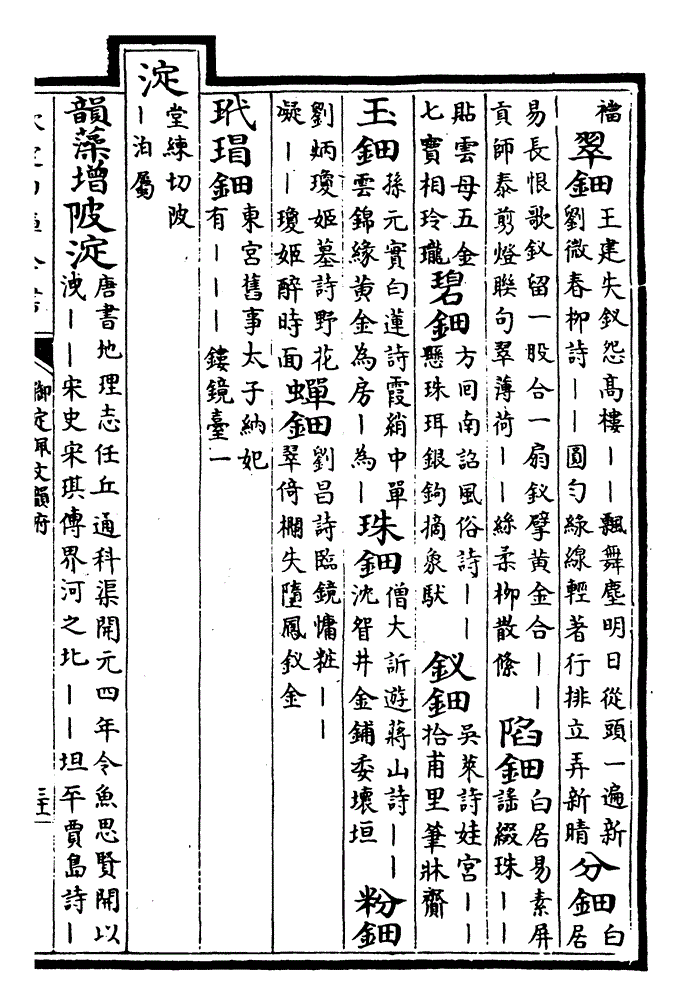 襠 翠鈿 王建失釵怨高樓——飄舞塵明日從頭一遍新
劉微春柳詩——圓勻綠線輕著行排立弄新晴 分鈿 白居
易長恨歌釵留一股合一扇釵擘黃金合——
貢師泰剪燈聯句翠薄荷——絲柔柳散絛 陷鈿 白居易素屏
謠綴珠——
貼雲母五金
七寶相玲瓏 碧鈿 方回南詔風俗詩——
懸珠珥銀鉤摘象馱 釵鈿 吳萊詩娃宮——
拾甫里筆牀齎
玉鈿 孫元實白蓮詩霞綃中單
雲錦緣黃金為房—為— 珠鈿 僧大訢遊蔣山詩——
沈眢井金鋪委壞垣 粉鈿
劉炳瓊姬墓詩野花
凝——瓊姬醉時面 蟬鈿 劉昌詩臨鏡慵粧——
翠倚欄失墮鳳釵金
玳瑁鈿 東宮舊事太子納妃
有———鏤鏡臺一
淀 堂練切陂
—泊屬
韻藻增陂淀 唐書地理志任丘通科渠開元四年令魚思賢開以
洩——宋史宋琪傳界河之北——坦平賈島詩—
御定佩文韻府